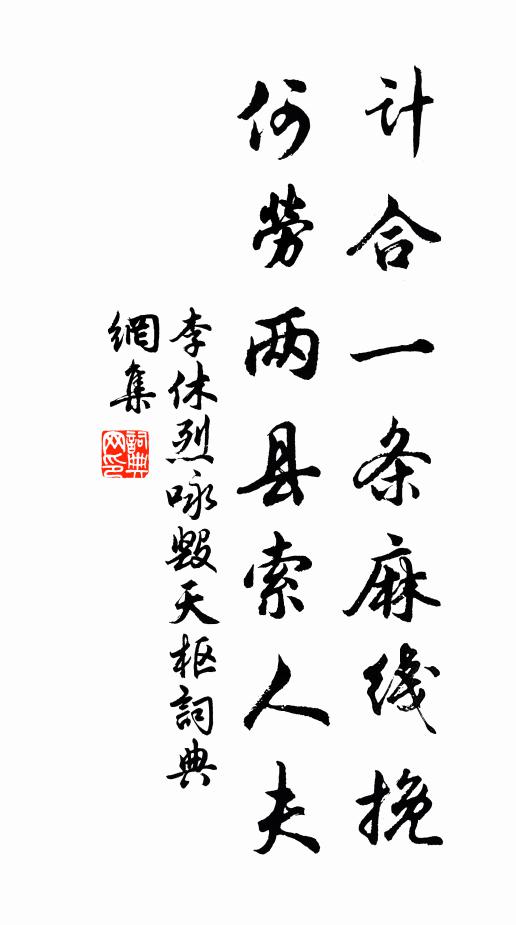 计合一条麻线挽
何勞两县索人夫
李休烈咏毁天枢詞典
網集
詞典
网印